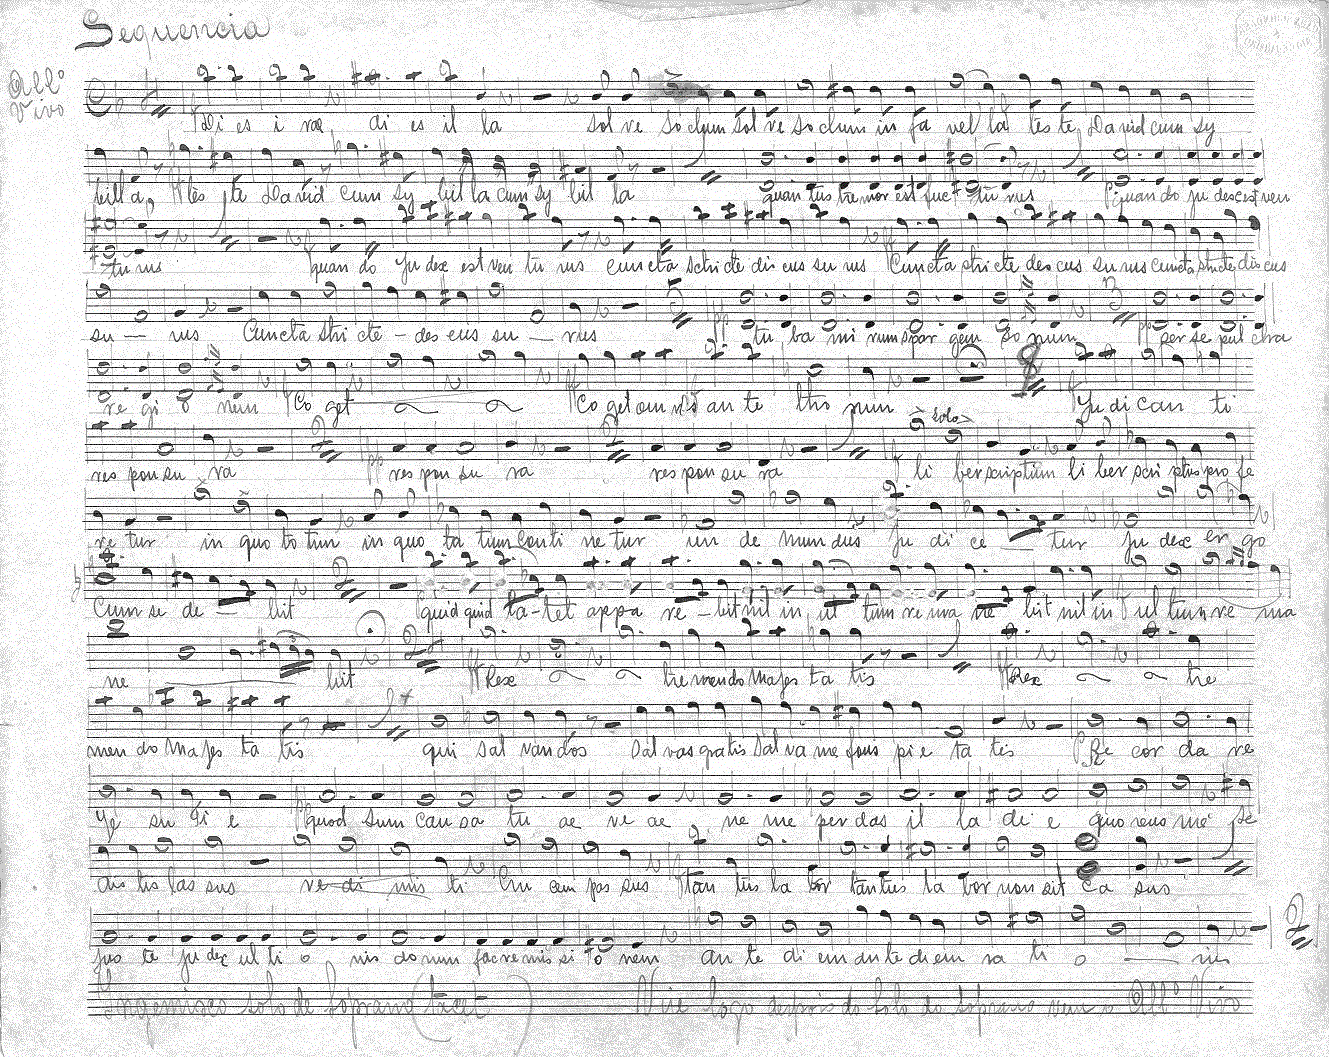 Sequencia
All.º Vivo
Di es i ræ di es il la sol ve soclum sol ve soclum in fa vel la tes te David cum sy
bill a, tes te David cum sy bil la cum sy bil la quan tus tremor est fuc tu rus quan do ju dex est ven
tu rus quan do Ju dex est ven tu rus cuncta stricte dis cus su rus Cuncta stricte des cus surus cuncta stricte dis cus
su — rus Cuncta stri cte - des cus su — rus tu, ba mi rum spar gen so num per se pul chra
re gi o nem Co get Co get om nes an te thro num Ju di can ti
res pon su ra res pon su ra res pon su ra Solo li ber scriptum li ber scri ptus pro fe
re tur in quo to tum in quo to tum conti ne tur un de mun dus Ju di ce — tur Ju dex er go
Cum se de — bit quid quid la-tet appa re - bit nil in ul tum re ma ne bit nil in ul tum re ma
ne bit Rex tremendo Majes ta tis Rex tre
men do Majes ta tis qui sal vandos salvas gratis sal va me fons pi e ta tis Re cor da re
Je su Pi e quod sum cau sa tu ae ve ae, ne me per das il la di e quærens me se
dis tis las sus re di mis ti Cru cem pas sus tan tus la bor tantus la bor non sit Ca sus
jus te judex ul ti o nis donum fac re mis si o nem an te di em ante diem ra ti o — nis
Ingemisco solo de Soprano (tacet) Vire logo depois do Solo do Soprano vem o All.º Vivo